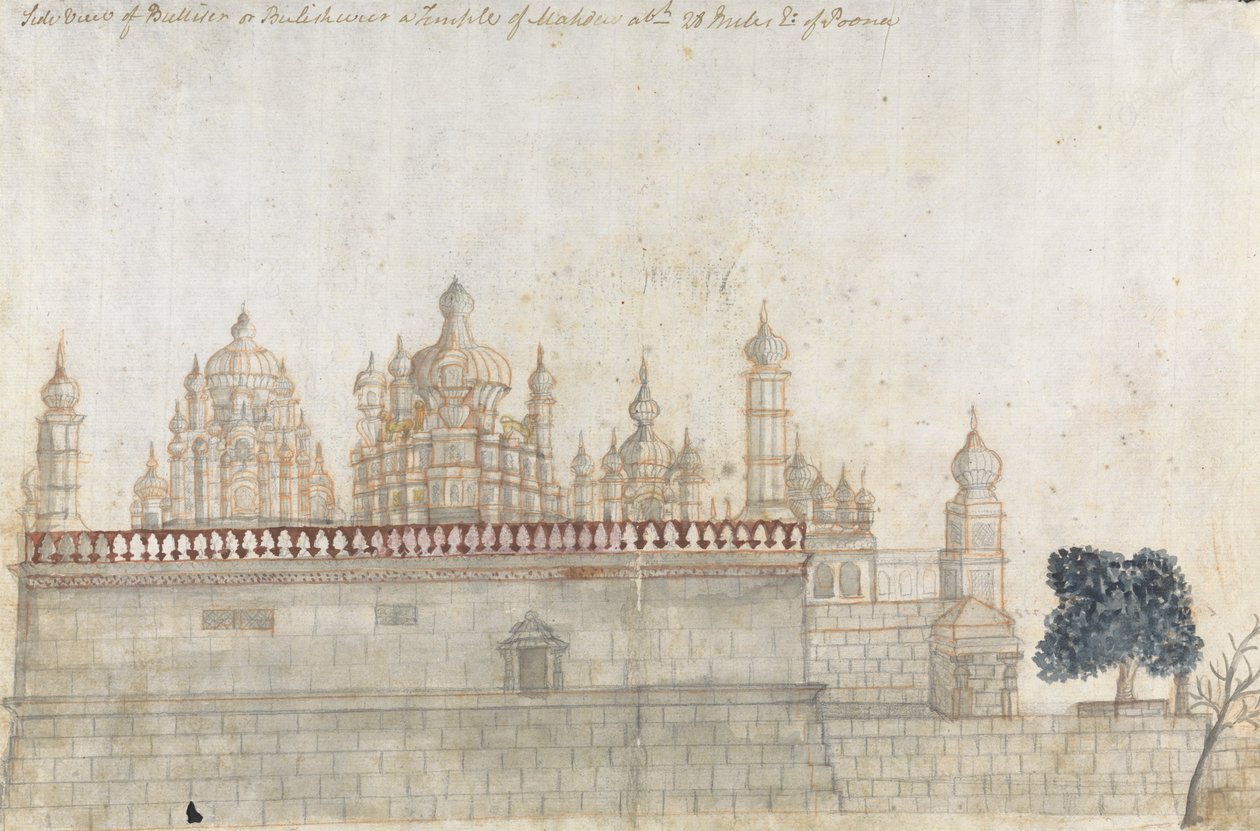 Side View of Bulliser or Buleshwur a Temple of Mahdew abt 28 Miles E: of Poona